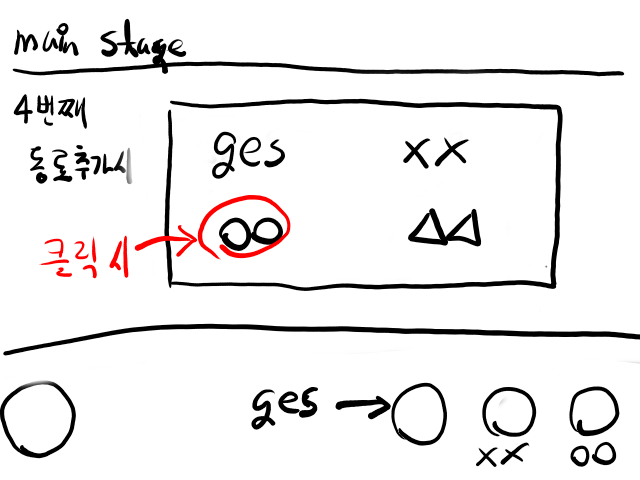 main stage
4번째
동료추가시
ges xx
oo △△
클릭시
ges →
xx oo